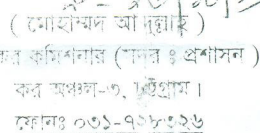 ( মোহাম্মদ আব্দুল্লাহ )
কর কমিশনার (সদর ও প্রশাসন )
কর অঞ্চল-৩, চট্টগ্রাম ।
ফোনঃ ০৩১-